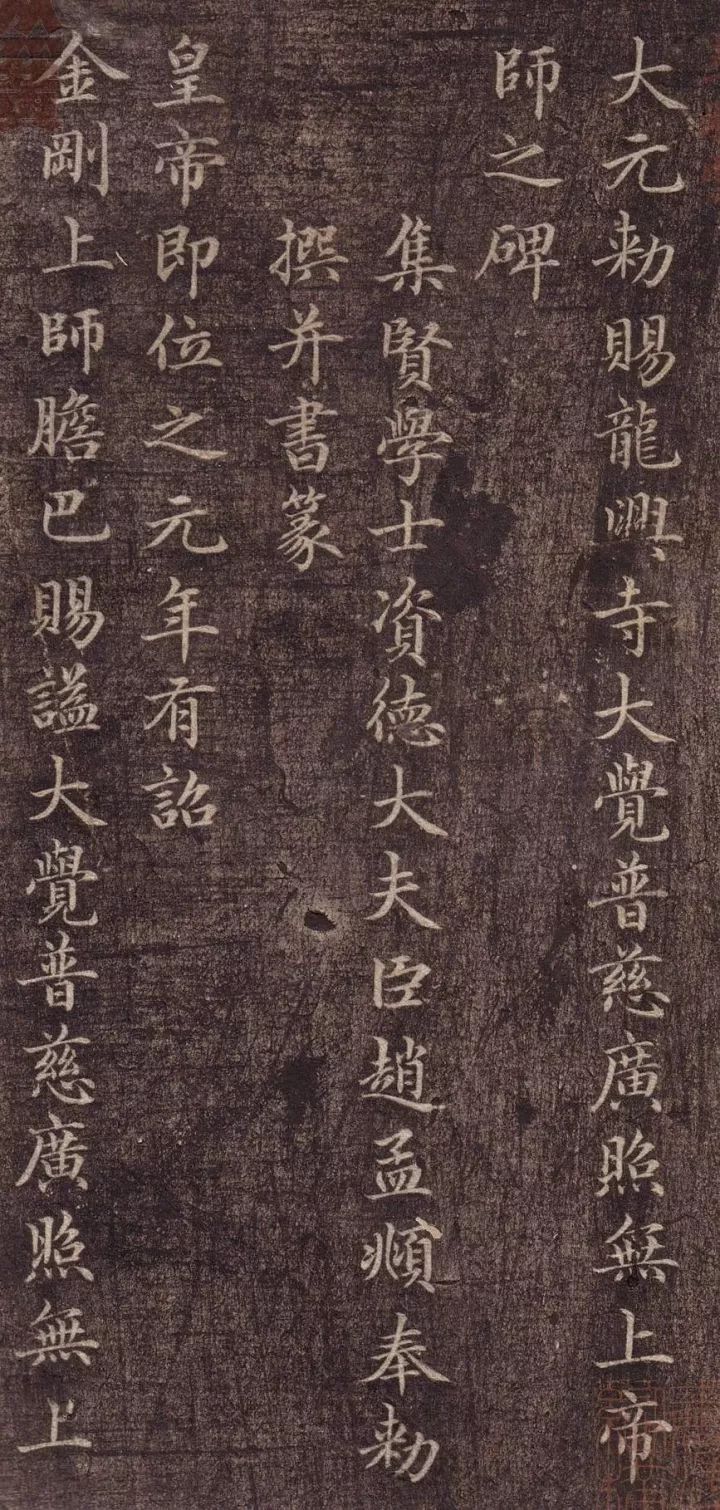 大元勑賜龍興寺大覺普慈廣照無上帝
師之碑
集賢學士資德大夫臣趙孟頫奉勑
撰并書篆
皇帝即位之元年有詔
金剛上師膽巴賜謚大覺普慈廣照無上